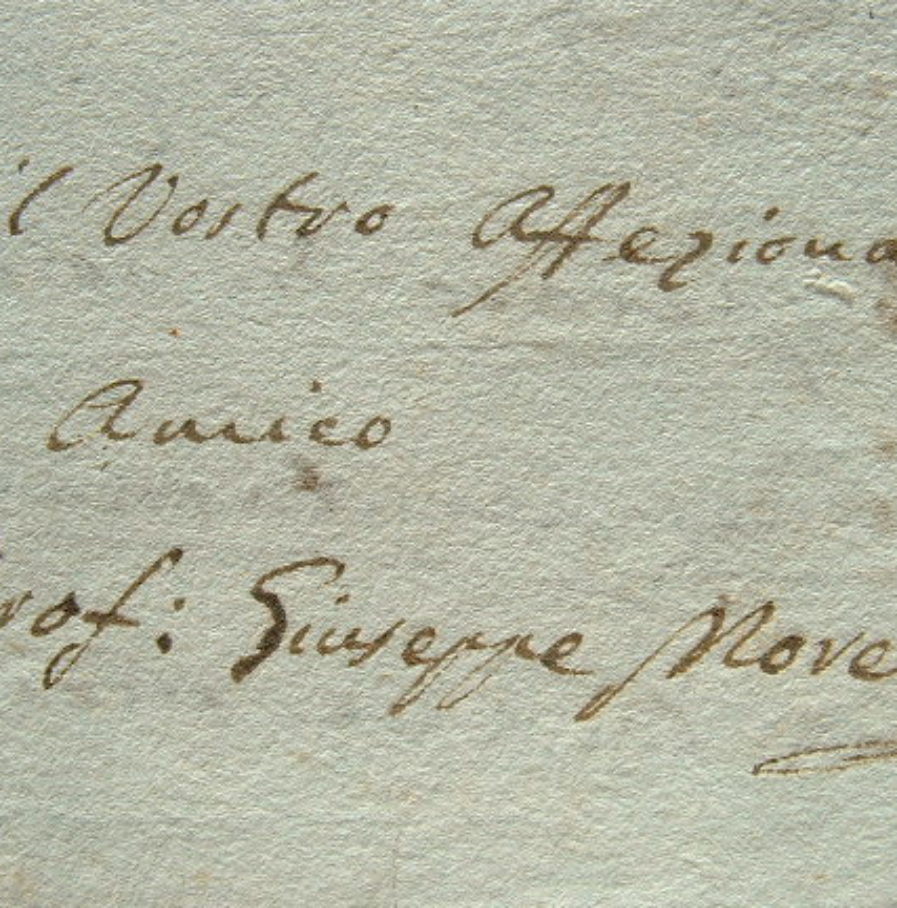 il Vostro Affeziona
Amico
rof: Giuseppe More